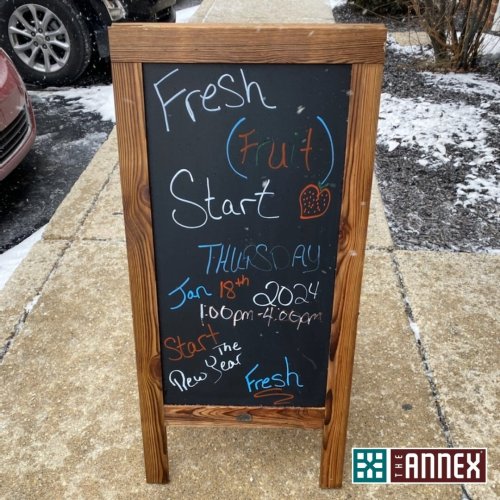 Fresh
(Fruit)
Start
THURSDAY
Jan 18th 2024
1:00pm-4:00pm
Start
The
New Year
Fresh
THE ANNEX